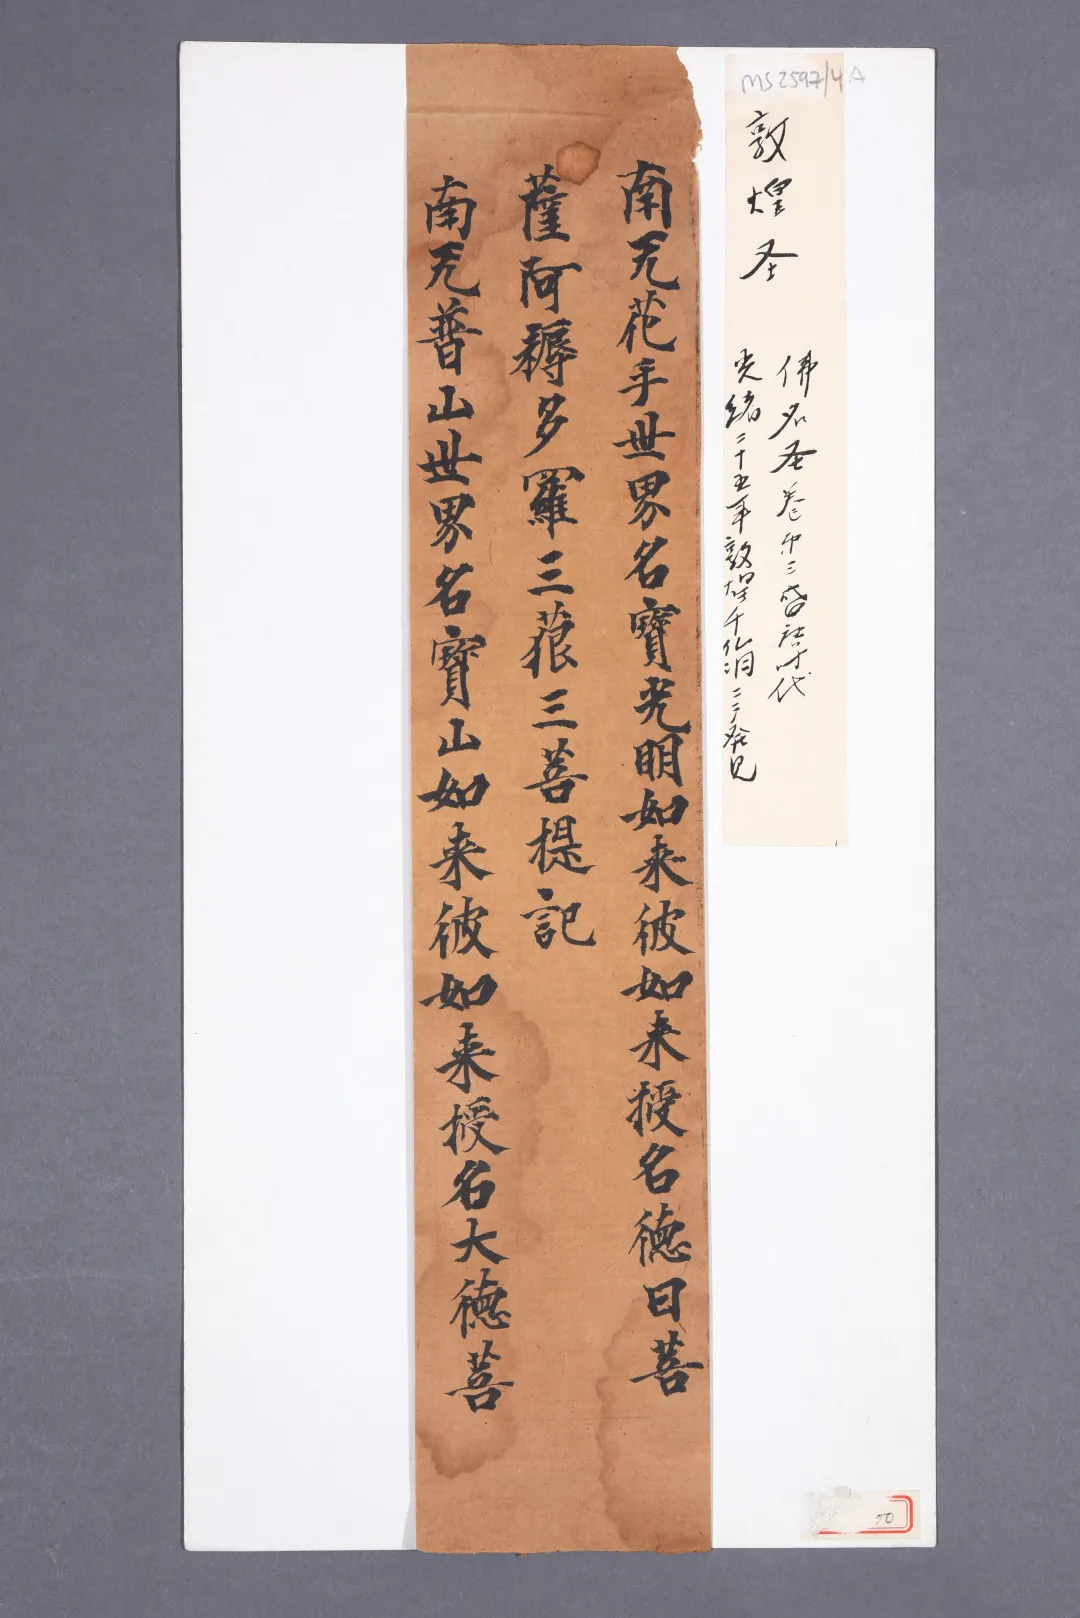 MS 2597/4A
敦煌圣
佛名圣卷中三 唐 時代
光緒二十五年敦煌千仏洞ニテ発見
南无花手世界名寶光明如来彼如来授名德日菩
薩阿耨多羅三藐三菩提記
南无普山世界名寶山如来彼如来授名大德菩
70